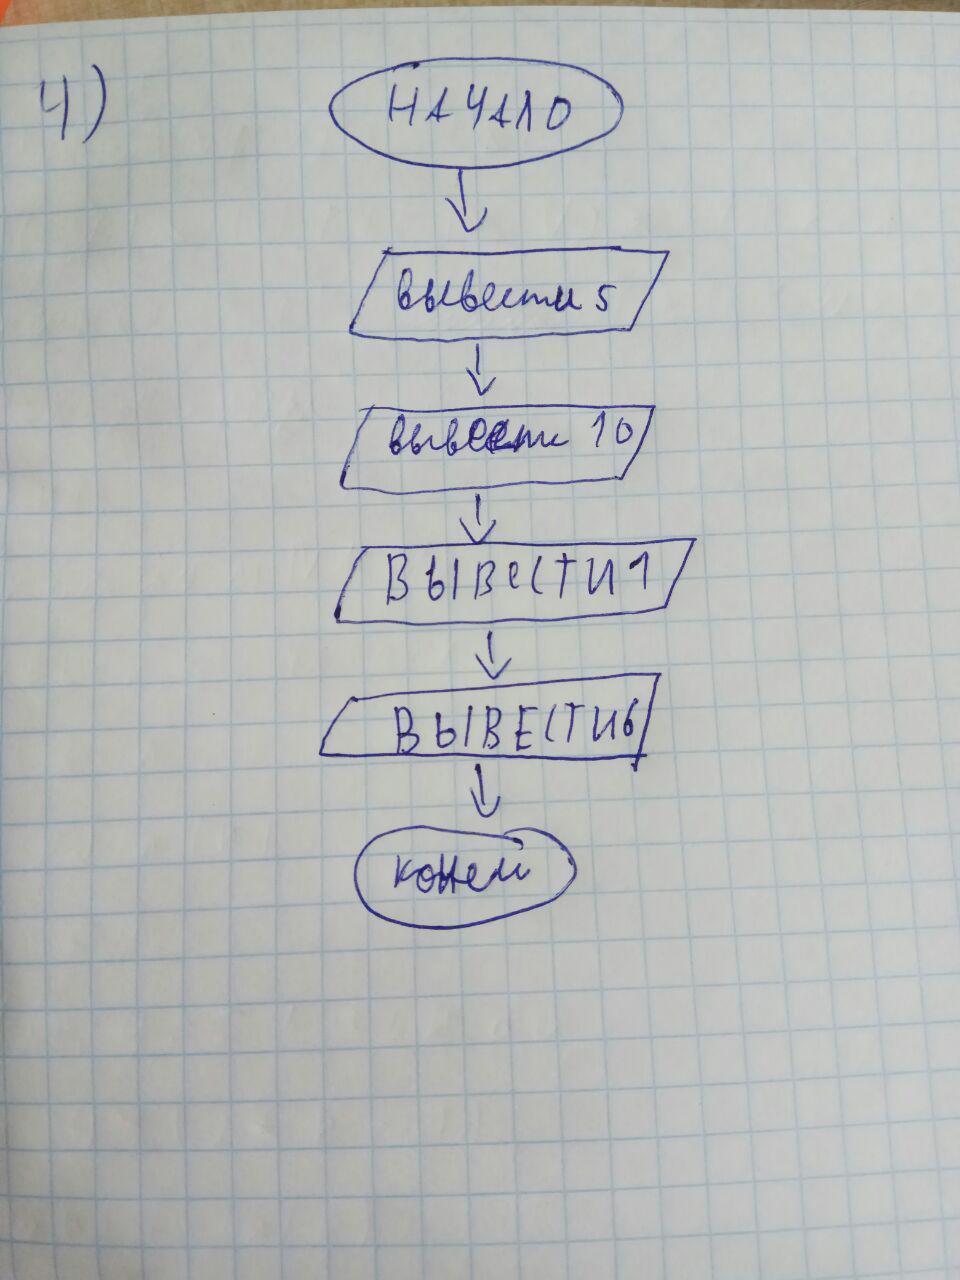 4)
НАЧАЛО
вывести 5
вывести 10
ВЫВЕСТИ 1
ВЫВЕСТИ 6
конец